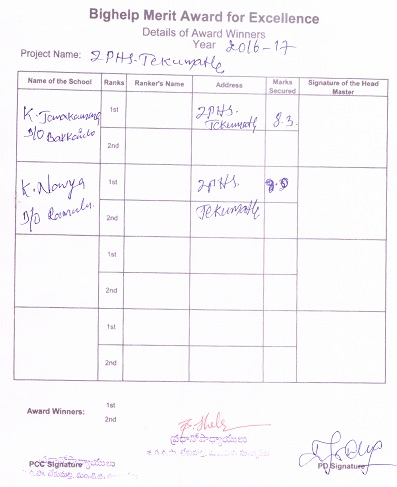 Bighelp Merit Award for Excellence
Details of Award Winners
Year 2016-17
Project Name: ZPHS-Tekumatla
Name of the School Ranks Ranker's Name Address Marks Secured Signature of the Head Master
K. 1st ZPHS. 8.3
D/O Tekumatla
2nd
K. Navya 1st ZPHS.
D/O Ramulu. 2nd Tekumatla
1st
2nd
1st
2nd
Award Winners: 1st
2nd
ప్రధానోపాధ్యాయులు
PCC Signature
PD Signature